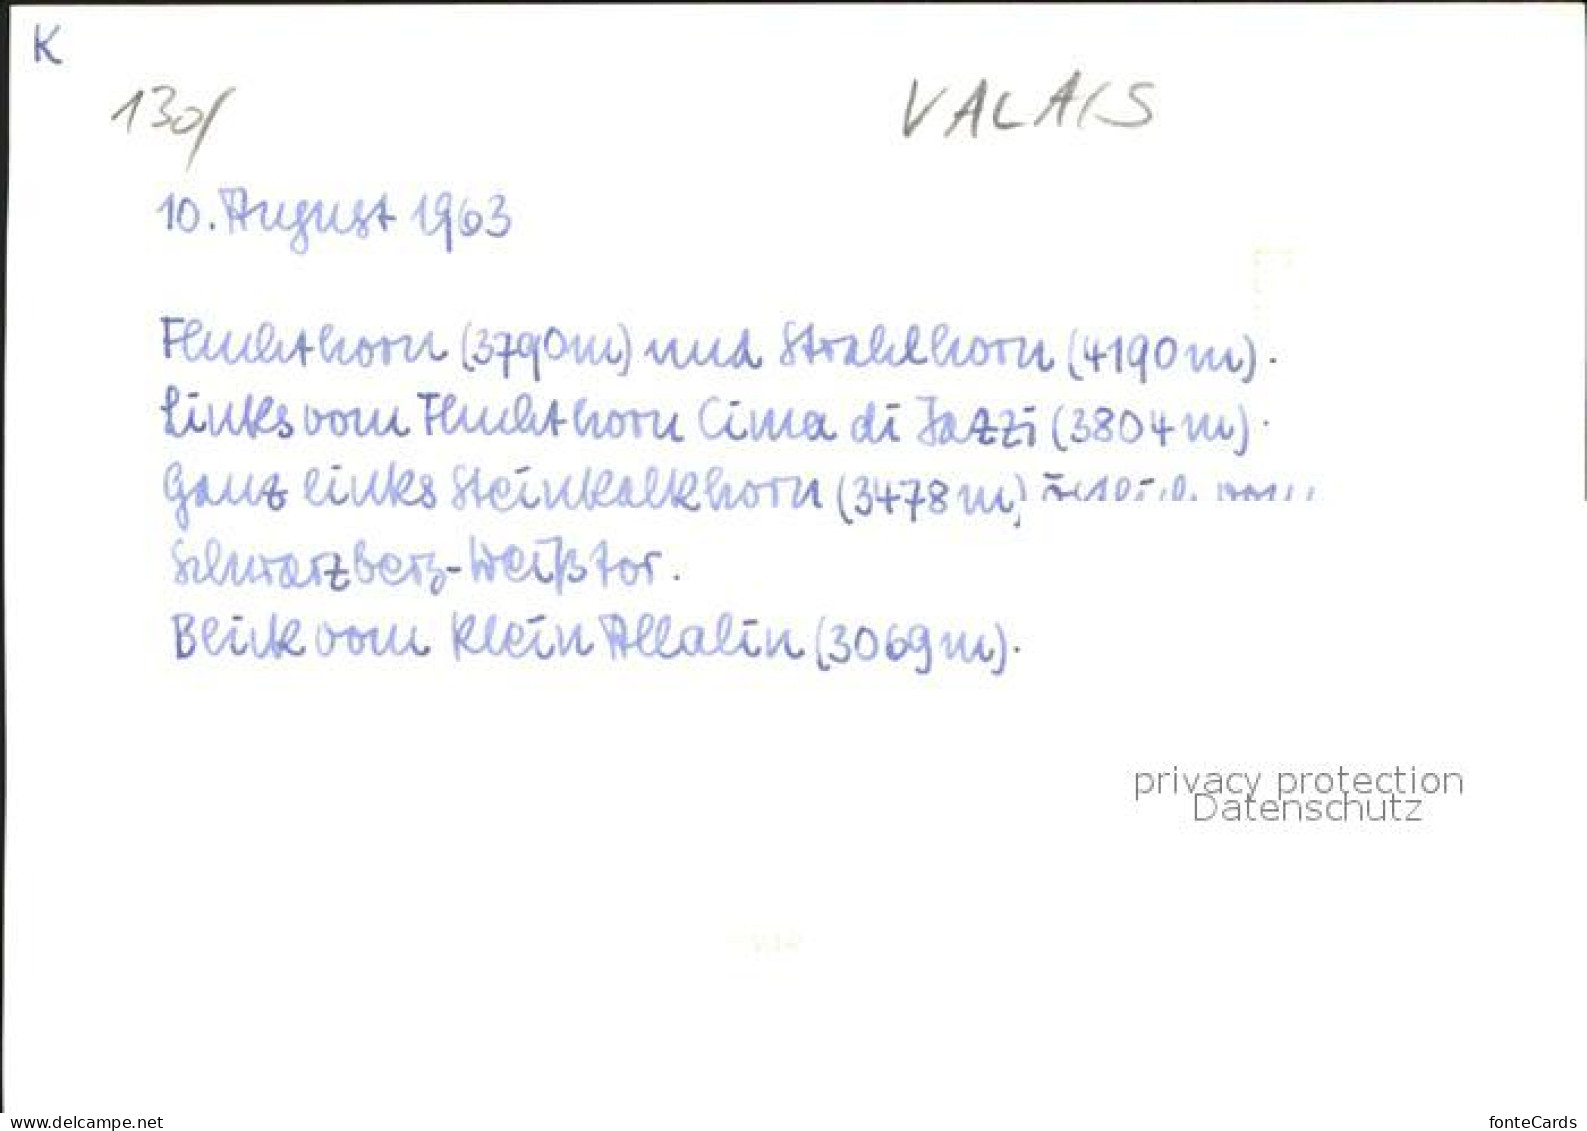 K
130
VALAIS
10. August 1963
Fluchthorn (3790m) und Strahlhorn (4190m).
Links vom Fluchthorn Cima di Jazzi (3804m).
Ganz links Steinkalkhorn (3478m) östlich vom
Schwarzberg-Weißtor.
Blick vom Klein Allalin (3069m).
privacy protection
Datenschutz
www.delcampe.net
fonteCards